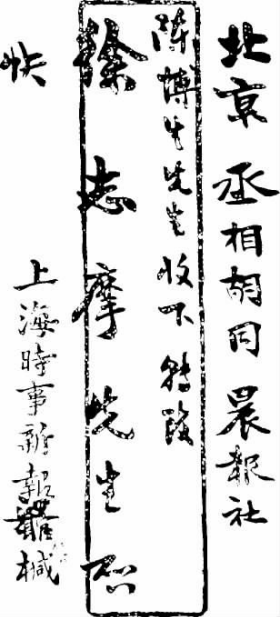 北京丞相胡同晨報社
陳博生先生收下转致
徐志摩先生启
快
上海時事新報瞿椷